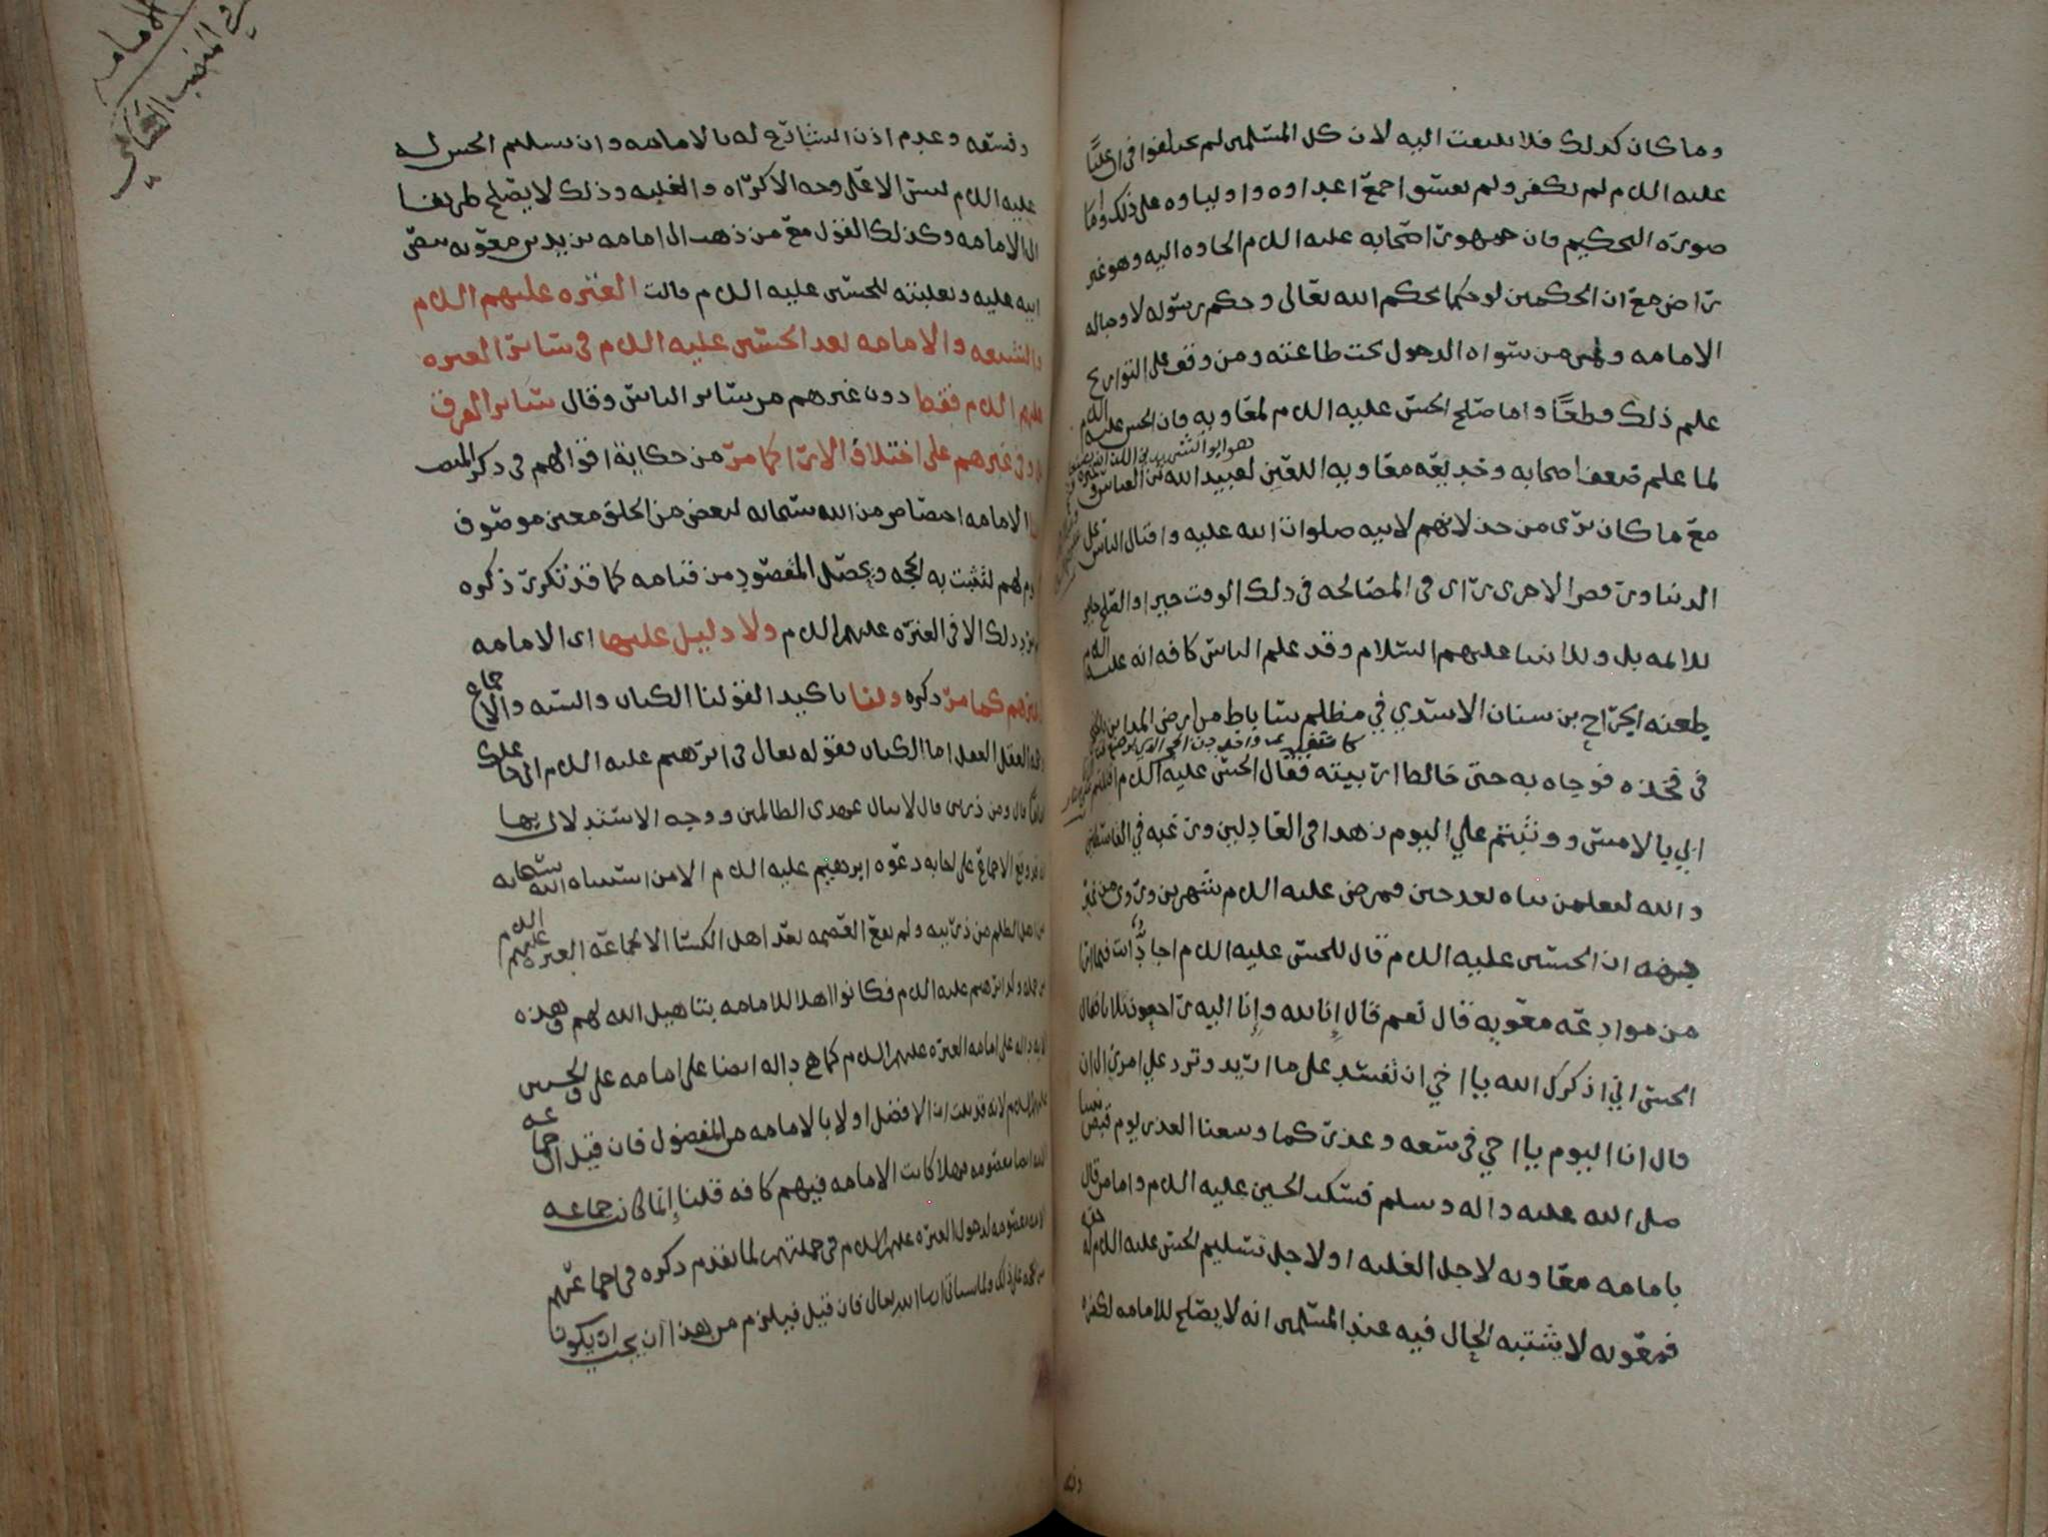 وما كان كذلك فلا يلتفت اليه لان كل المسلمين لم يختلفوا في ان عليًّا
عليه السلام لم يكفر ولم يفسق اجمع اعداوه واولياوه على ذلك واما
صورة التحكيم فان جمهور اصحابه عليه السلام الجاوه اليه وهو غير
راض مع ان الحكمين لو حكما بحكم الله تعالى وحكم رسوله لاوجبا له
الامامه ولمن سواه الدخول تحت طاعته ومن وقف على التواريخ
علم ذلك قطعًا واما صلح الحسن عليه السلام لمعاويه فان الحسن عليه السلام
لما علم ضعف اصحابه وخديعه معاويه اللعين لعبيد الله بن العباس
مع ما كان يرى من خذلانهم لابيه صلوات الله عليه واقبال الناس على
الدنيا ورفض الاخرى راى في المصالحه في ذلك الوقت خيرا والصلح جايز
للائمه بل وللانبيا عليهم السلام وقد علم الناس كافه انه عليه السلام
طعنه الجراح بن سنان الاسدي في مظلم ساباط من ارض المداين
في فخذه فوجاه به حتى خالط اربيته فقال الحسن عليه السلام قتلتم
ابي بالامس ووثبتم علي اليوم زهدا في العادلين ورغبه في القاسطين
والله لتعلمن نباه بعد حين فمرض عليه السلام شهرين وروي من غير
جهه ان الحسين عليه السلام قال للحسن عليه السلام اجادٌّ انت فيما ارى
من موادعه معويه قال نعم قال إنا لله وإنا اليه راجعون ثلاثا فقال
الحسين اني اذكرك الله يا اخي ان تفسد على ما اريد وترد علي امري
قال انا اليوم يا اخي في سعه وعذر كما وسعنا العذر يوم قبض نبينا
صلى الله عليه واله وسلم فسكت الحسين عليه السلام واما من قال
بامامه معاويه لاجل الغلبه او لاجل تسليم الحسن عليه السلام
فمعويه لا يشتبه الحال فيه عند المسلمين انه لا يصلح للامامه لكفره
وفسقه
في الامامه
وفسقه وعدم اذن الشارع له بالامامه وان تسليم الحسن له
عليه السلام ليس الا على وجه الاكراه والغلبه وذلك لا يصلح طريقا
الى الامامه وكذلك القول مع من ذهب الى امامه يزيد بن معويه بنص
ابيه عليه وتغلبه للحسين عليه السلام قالت العتره عليهم السلام
والشيعه والامامه بعد الحسين عليه السلام في سائر العتره
عليهم السلام فقط دون غيرهم من سائر الناس وقال سائر الفرق
وفي غيرهم على اختلاف الارا كما مر من حكاية اقوالهم في ذكر المنصب
الامامه اختصاص من الله سبحانه لبعض من الخلق معين موصوف
لهم لتثبت به الحجه ويحصل المقصود من قيامه كما قد تكرر ذكره
ذلك الا في العتره عليهم السلام ولا دليل عليها اى الامامه
كما مر ذكره ولنا تاكيد القولنا الكتاب والسنه والاجماع
العقل اما الكتاب فقوله تعالى في ابرهيم عليه السلام اني جاعلك
قال ومن ذريتي قال لا ينال عهدي الظالمين ووجه الاستدلال بها
وقع الاجماع على اجابه دعوه ابرهيم عليه السلام الا من استثناه الله سبحانه
من اهل الظلم من ذريته ولم تقع العصمه بعد اهل الكسا الا لجماعه العتره عليهم السلام
ولد ابرهيم عليه السلام فكانوا اهلا للامامه بتاهيل الله لهم وهذه
الايه داله على امامه العتره عليهم السلام كما هي داله ايضا على امامه علي والحسنين
السلام لانه قد ثبت ان الافضل اولا بالامامه من المفضول فان قيل ان جماعه
معصومه فهلا كانت الامامه فيهم كافه قلنا إنما كانت جماعه
معصومه لدخول العتره عليهم السلام في جملتهم لما تقدم ذكره في اجماعهم
ان شا الله تعالى فان قيل فيلزم من هذا ان يجب ان يكون